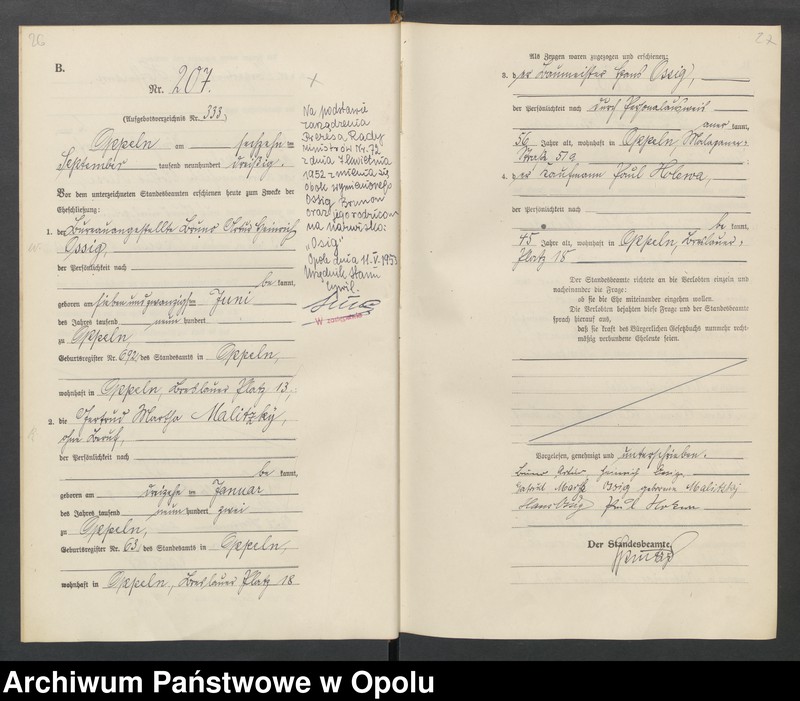 26
B.
Nr. 207.
(Aufgebotsverzeichnis Nr. 333)
Oppeln am sechzehnten
September tausend neunhundert dreißig.
Vor dem unterzeichneten Standesbeamten erschienen heute zum Zwecke der
Eheschließung:
1. der Bureauangestellte Bruno Artur Heinrich
Ossig,
der Persönlichkeit nach
be kannt,
geboren am siebenundzwanzigsten Juni
des Jahres tausend neun hundert
zu Oppeln,
Geburtsregister Nr. 692 des Standesamts in Oppeln,
wohnhaft in Oppeln, Breslauer Platz 13,
2. die Gertrud Martha Malitzky,
ohne Beruf,
der Persönlichkeit nach
be kannt,
geboren am dreizehnten Januar
des Jahres tausend neun hundert zwei
zu Oppeln,
Geburtsregister Nr. 63 des Standesamts in Oppeln,
wohnhaft in Oppeln, Breslauer Platz 18
Na podstawie
zarządzenia
Prezesa Rady
Ministrów Nr. 72
z dnia kwietnia
1952 zmienia się
obok wymienionego
Ossig Brunon
oraz jego rodziców
na nazwisko:
"Osig"
Opole dnia 11.V.1953
Urzędnik Stanu
Cywil.
W zastępstwie
27
Als Zeugen waren zugezogen und erschienen:
3. der Baumeister Hans Ossig,
der Persönlichkeit nach durch Personalausweis
aner kannt,
56 Jahre alt, wohnhaft in Oppeln, Malapaner-
Straße 51a
4. der Kaufmann Paul Holewa,
der Persönlichkeit nach
be kannt,
45 Jahre alt, wohnhaft in Oppeln, Breslauer-
Platz 18
Der Standesbeamte richtete an die Verlobten einzeln und
nacheinander die Frage:
ob sie die Ehe miteinander eingehen wollen.
Die Verlobten bejahten diese Frage und der Standesbeamte
sprach hierauf aus,
daß sie kraft des Bürgerlichen Gesetzbuchs nunmehr recht-
mäßig verbundene Eheleute seien.
Vorgelesen, genehmigt und unterschrieben.
Bruno Artur Heinrich Ossig
Gertrud Martha Ossig geborene Malitzky
Hans Ossig Paul Holewa
Der Standesbeamte.
Archiwum Państwowe w Opolu